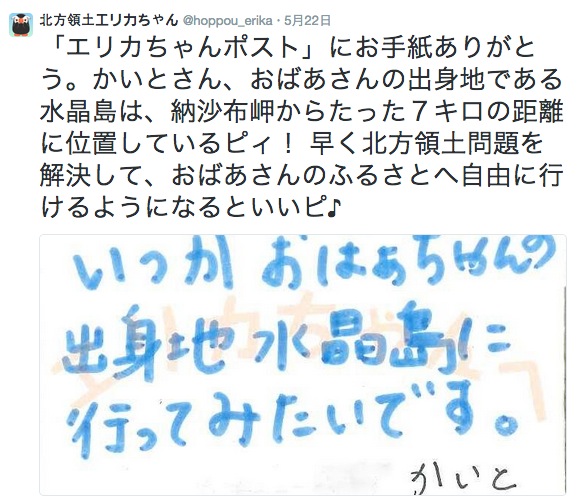 北方領土エリカちゃん @hoppou_erika・5月22日
「エリカちゃんポスト」にお手紙ありがと
う。かいとさん、おばあさんの出身地である
水晶島は、納沙布岬からたった７キロの距離
に位置しているピィ！ 早く北方領土問題を
解決して、おばあさんのふるさとへ自由に行
けるようになるといいピ♪
いっか おばあちゃんの
出身地 水晶島に
行ってみたいです。
かいと